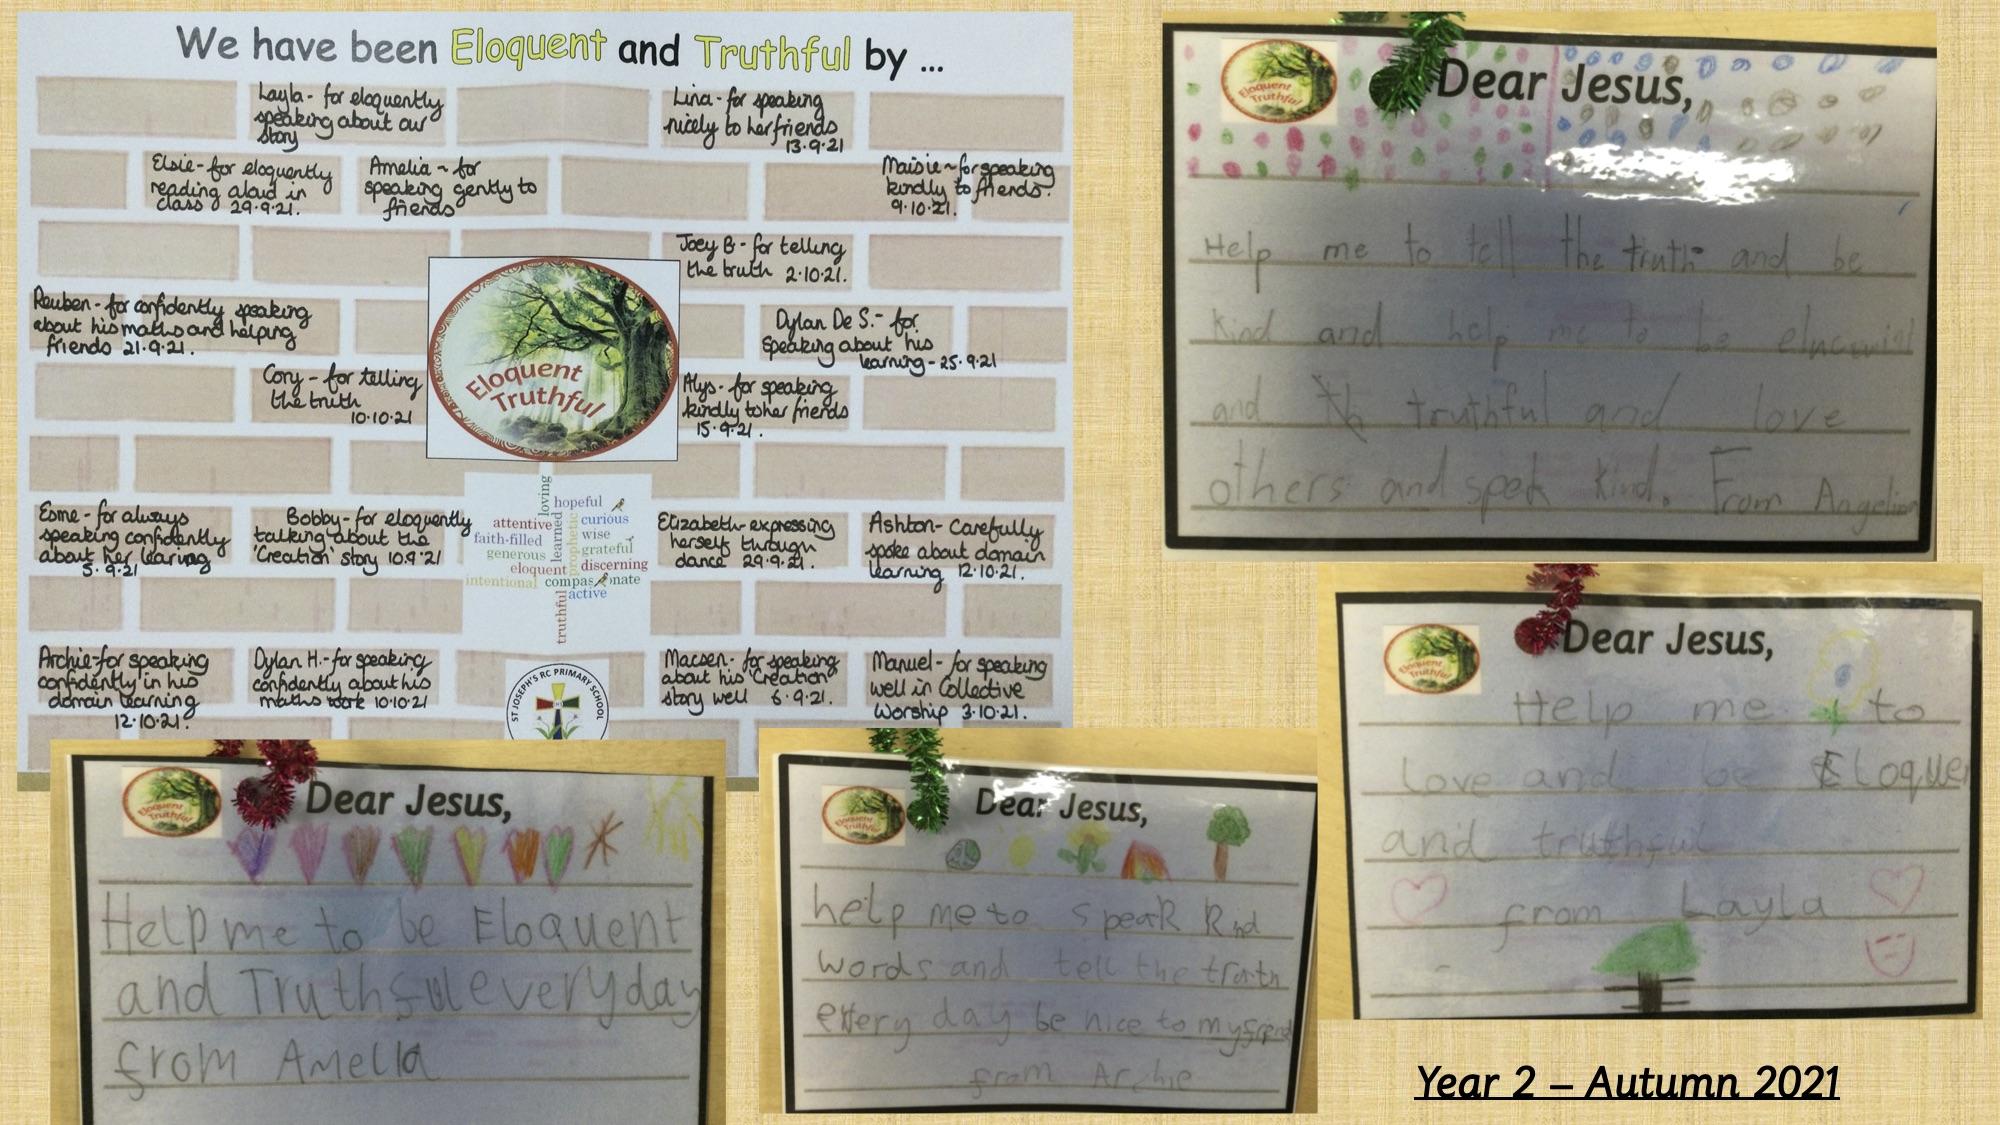 We have been Eloquent and Truthful by ...
Layla - for eloquently
speaking about our
story
Lina - for speaking
nicely to her friends
13.9.21
Elsie - for eloquently
reading aloud in
class 29.9.21.
Amelia ~ for
speaking gently to
friends
Maisie ~ for speaking
kindly to friends.
9.10.21.
Joey B - for telling
the truth 2.10.21.
Reuben - for confidently speaking
about his maths and helping
friends 21.9.21.
Dylan De S. - for
speaking about his
learning - 25.9.21
Cory - for telling
the truth
10.10.21
Eloquent
Truthful
Alys - for speaking
kindly to her friends
15.9.21.
Esme - for always
speaking confidently
about her learing
5.9.21
Bobby - for eloquently
talking about the
'Creation' story 10.9.21
loving
hopeful
attentive
curious
faith-filled
learned
prophetic
wise
generous
grateful
eloquent
discerning
intentional
compas nate
active
truthful
Elizabeth - expressing
herself through
dance 29.9.21.
Ashton - Carefully
spoke about domain
learning 12.10.21.
Archie - for speaking
confidently in his
domain learning
12.10.21.
Dylan H. - for speaking
confidently about his
maths work 10.10.21
ST JOSEPH'S RC PRIMARY SCHOOL
Macsen - for speaking
about his 'Creation'
story well 6.9.21.
Manuel - for speaking
well in Collective
Worship 3.10.21.
Eloquent
Truthful
Dear Jesus,
Help me to tell the truth and be
kind and help me to be
and th truthful and love
others and spek kind. From Angelin
Eloquent
Truthful
Dear Jesus,
Help me to
love and be Eloque
and truthful
from Layla
Eloquent
Truthful
Dear Jesus,
Help me to be Eloquent
and Truthful everyday
from Amelia
Eloquent
Truthful
Dear Jesus,
help me to speak kind
words and tell the
every day be nice to my
from Archie
Year 2 – Autumn 2021